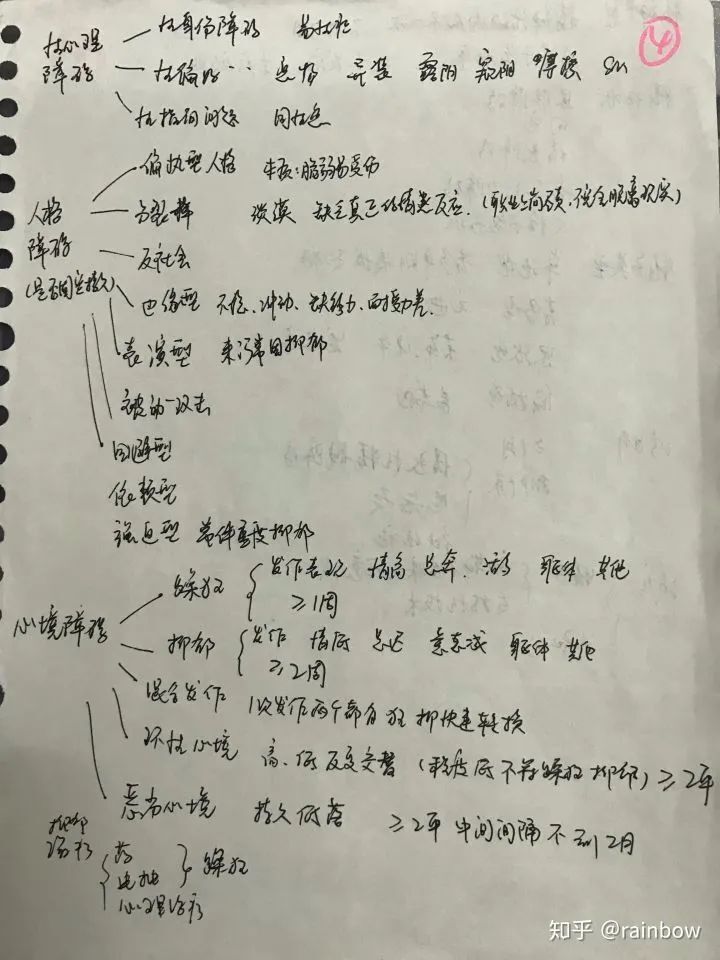 ④
性心理障碍
性身份障碍 易性症
性偏好… 恋物 异装 露阴 窥阴 摩擦 SM
性指向问题 同性恋
人格障碍
(是否固定持久)
偏执型人格 本质:脆弱易受伤
分裂样 淡漠 缺乏真正的情感反应.(职业上尚可,不完全脱离现实)
反社会
边缘型 不稳、冲动、缺能力、耐受力差.
表演型 来访常因抑郁
被动-攻击
回避型
依赖型
强迫型 常伴重度抑郁
心境障碍
躁狂 发作表现 情高 思奔. 活多 躯体 其他
≥1周
抑郁 发作 情低 思迟 意志减 躯体 其他
≥2周
混合发作 1次发作两个都有 狂 抑快速转换
环性心境 高、低反复交替 (程度后不符躁狂 抑郁) ≥2年
恶劣心境 持久低落 ≥2年 中间间隔不到2月
抑郁治疗
药
电抽
心理治疗
躁狂
知乎 @rainbow